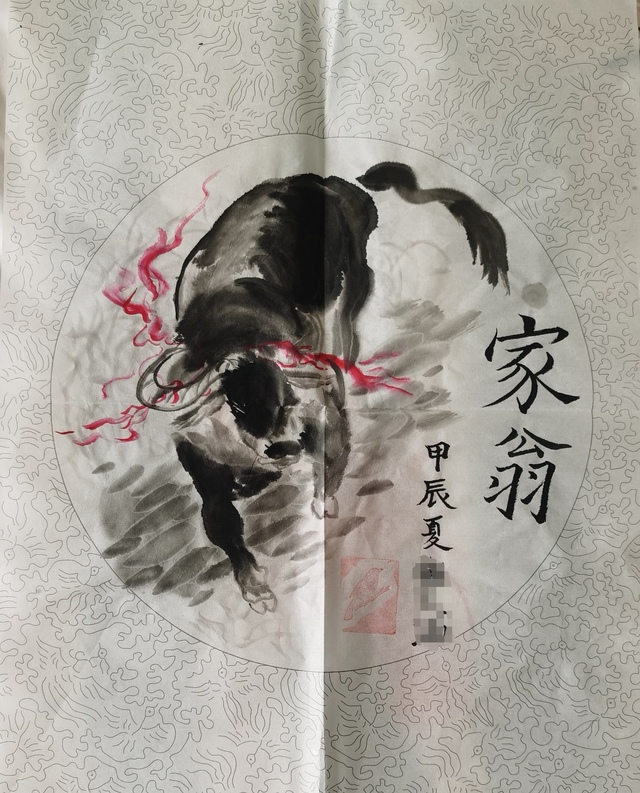 家翁
甲辰夏